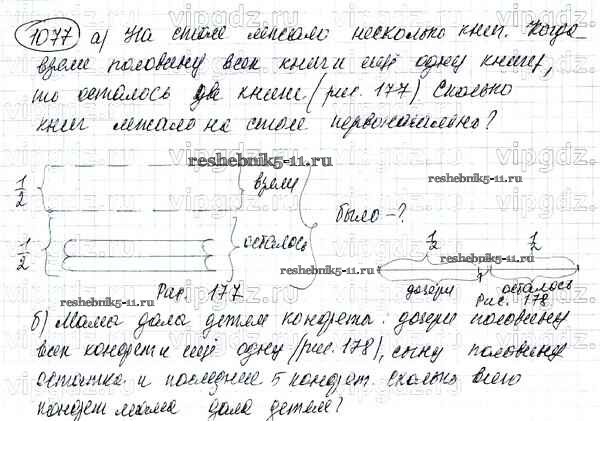 1077 а) На столе лежало несколько книг. Когда
взяли половину всех книг и ещё одну книгу,
то осталось две книги (рис. 177) Сколько
книг лежало на столе первоначально?
reshebnik5-11.ru
1/2 взяли
reshebnik5-11.ru
было - ?
1/2 осталось
1/2 1/2
reshebnik5-11.ru
reshebnik5-11.ru
дочери осталось
Рис. 177
Рис. 178
reshebnik5-11.ru
reshebnik5-11.ru
б) Мама дала детям конфеты: дочери половину
всех конфет и ещё одну (рис. 178), сыну половину
остатка и последние 5 конфет. Сколько всего
конфет мама дала детям?